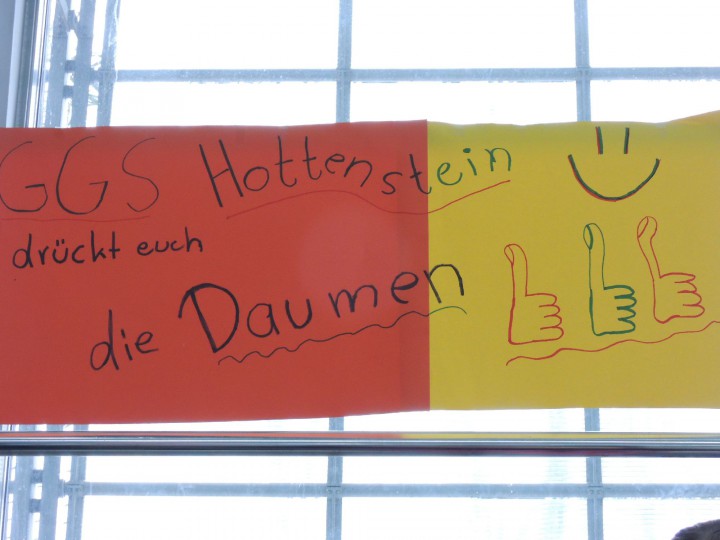 GGS Hottenstein
drückt euch
die Daumen